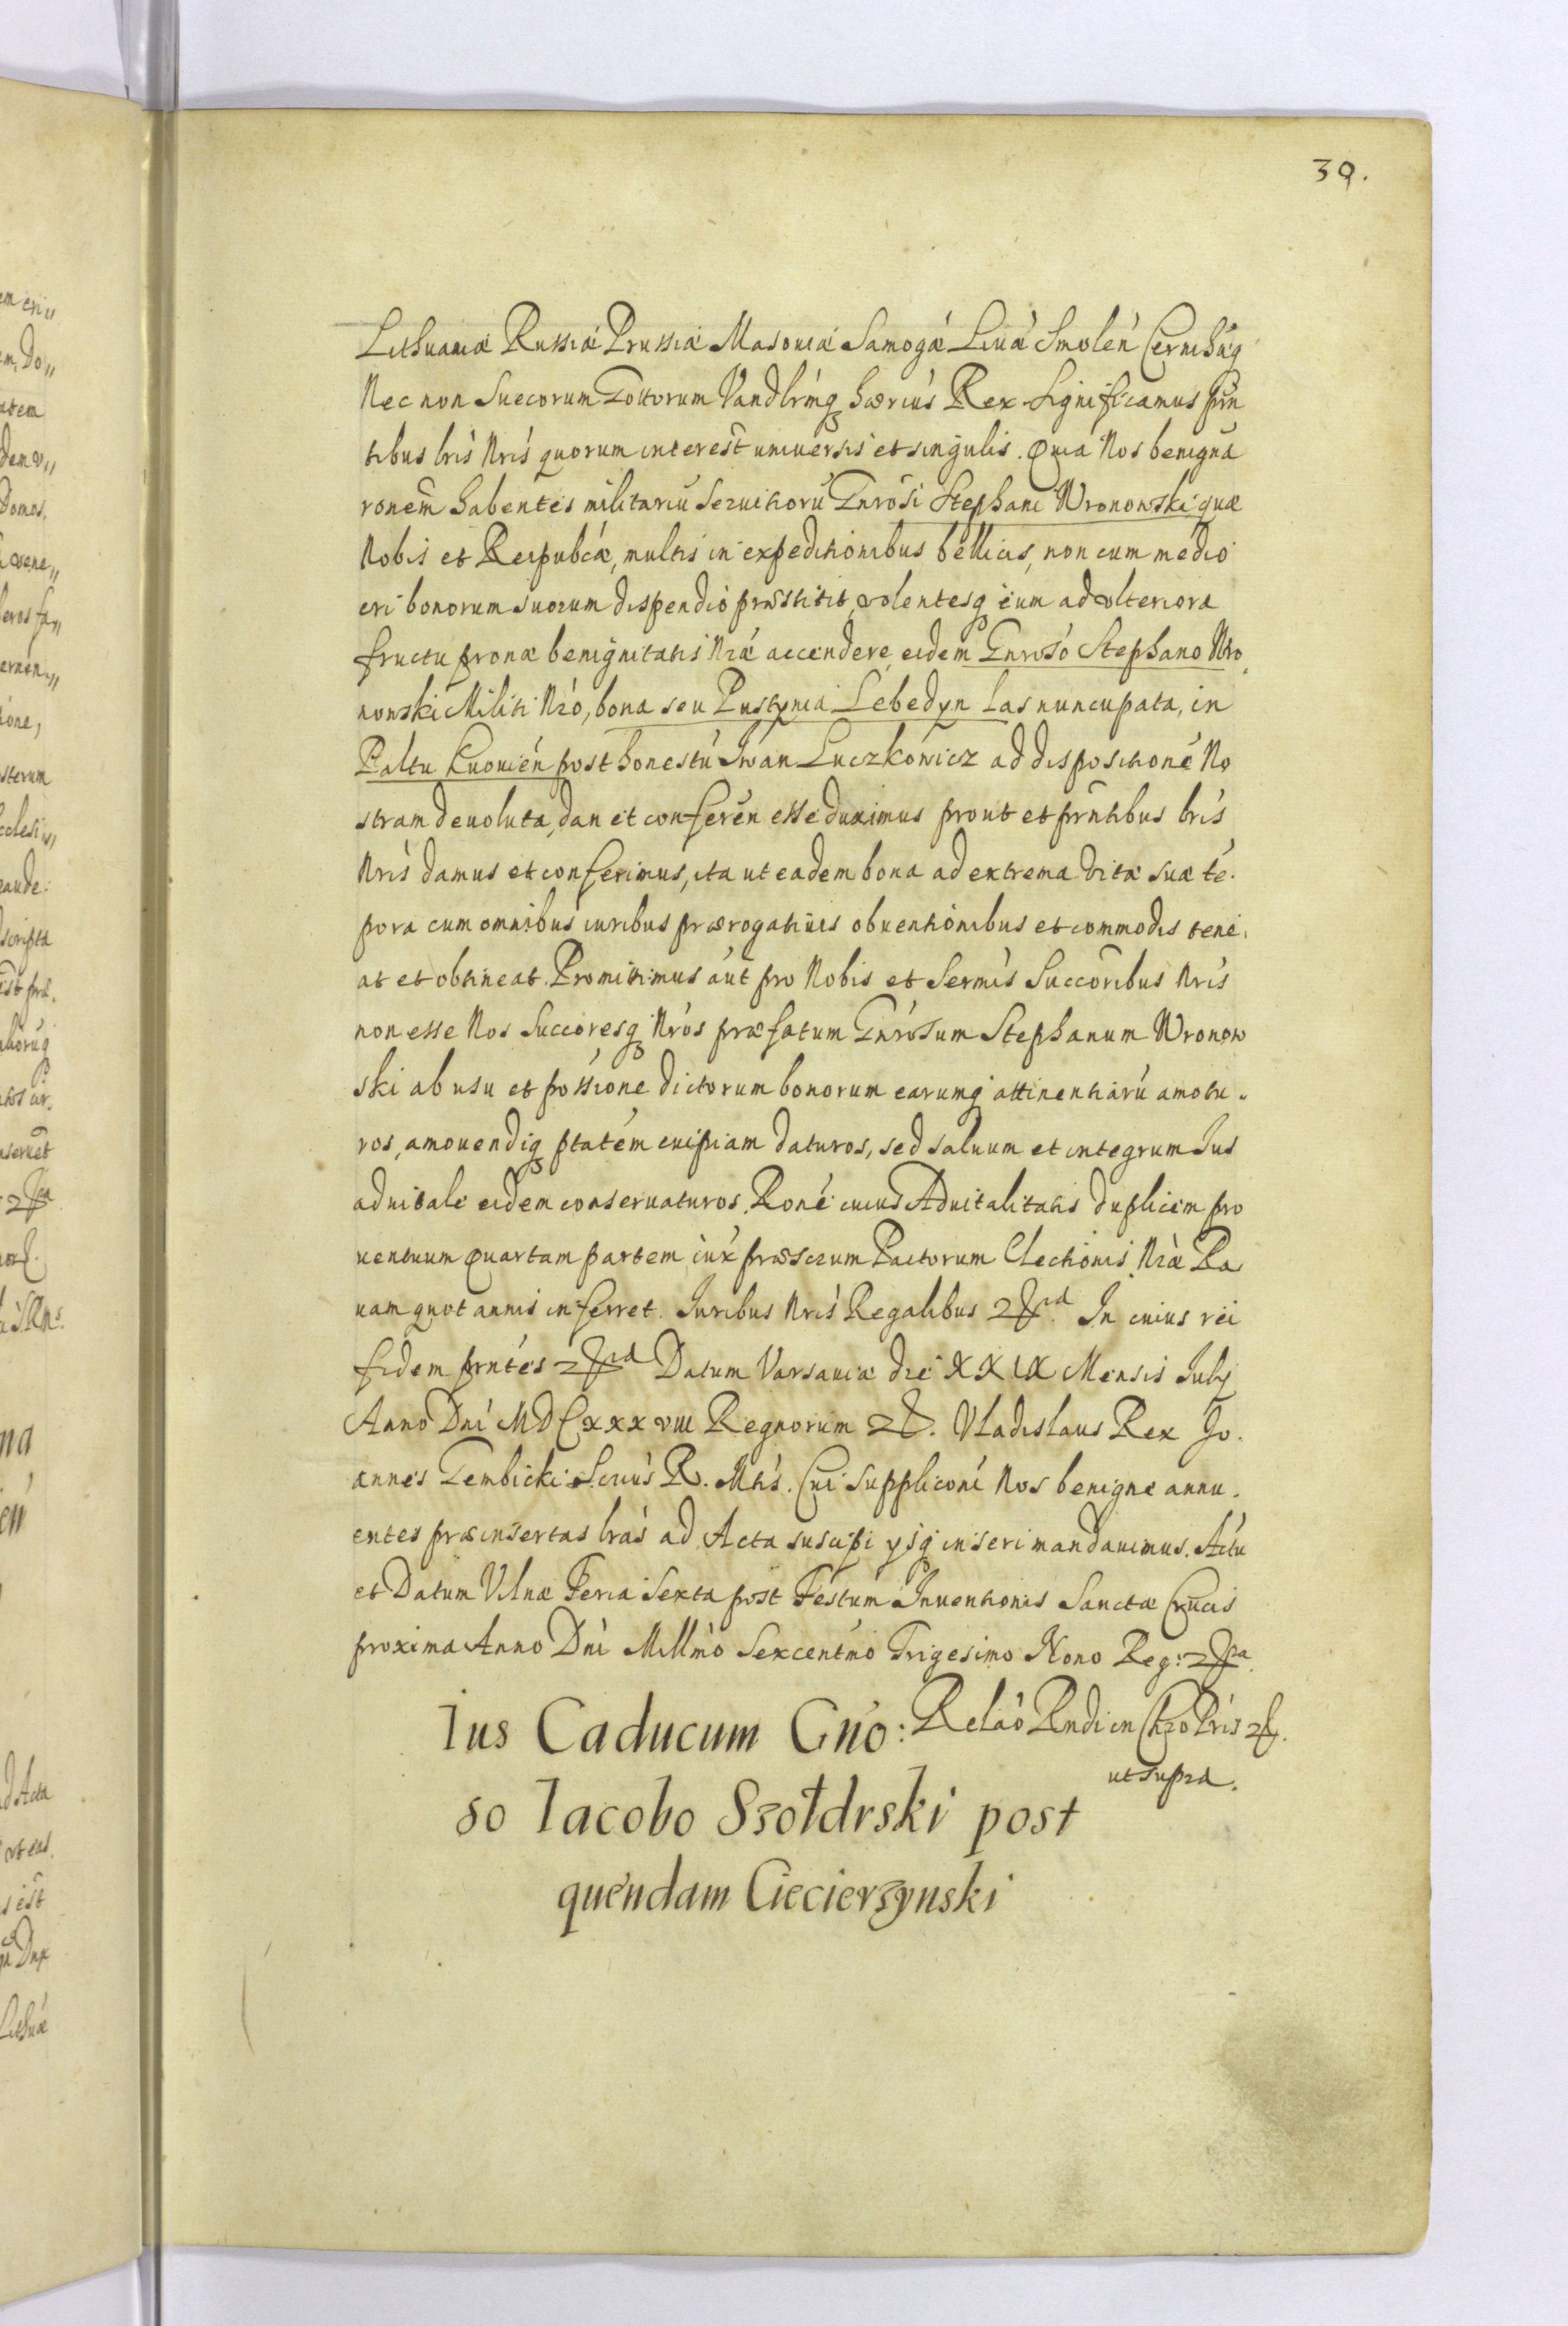 39.
Lithuaniæ Russiæ Prussiæ Masoviæ Samogæ Livæ Smolen Cernihuq
Nec non Suecorum Gottorum Vandlrmq hærius Rex Significamus prn
tibus lris Nris quorum interest universis et singulis. Quia Nos benigna
ronem habentes militariu servitioru Gnrosi Stephani Wronowski quæ
Nobis et Reipubcæ, multis in expeditionibus bellicis, non cum medio
cri bonorum suorum dispendio præstitit, volentesq eum ad ulteriora
fructu pronæ benignitatis Nræ accendere eidem Gnroso Stephano Wro
nowski Militi Nro, bona seu Pustynia Lebedyn Las nuncupata, in
Paltu Kuovien post honestu Iwan Luczkowicz ad dispositione No
stram devoluta, dan et conferen esse duximus prout et prntibus lris
Nris damus et conferimus, ita ut eadem bona ad extrema vitæ suæ te.
pora cum omnibus iuribus prærogativis obventionibus et commodis tene.
at et obtineat. Promittimus aut pro Nobis et Sermis Succoribus Nris
non esse Nos Succoresq Nros præfatum Gnrosum Stephanum Wronow
ski ab usu et possione dictorum bonorum earumq attinentiaru amotu.
ros, amovendiq ptatem cuipiam daturos, sed salvum et integrum Ius
advitale eidem conservaturos. Rone cuius Advitalitatis duplicem pro
ventuum quartam partem iux præscrum Pactorum Electionis Nræ Ra
vam quot annis inferret. Iuribus Nris Regalibus In cuius rei
fidem prntes Datum Varsaviæ die XXIX Mensis Iulij
Anno Dni MDCxxxviii Regnorum Vladislaus Rex Jo.
annes Gembicki Scrius R. Mtis. Cui Suppliconi Nos benigne annu.
entes præinsertas lras ad Acta suscipi ijsq inseri mandavimus. Actu
et Datum Vilnæ Feria Sexta post Festum Inventionis Sanctæ Crucis
proxima Anno Dni Millmo Sexcentmo Trigesimo Nono Reg:
Relao Rndi in Chro Pris
ut supra.
Ius Caducum Gno:
so Iacobo Szołdrski post
quendam Ciecierzynski